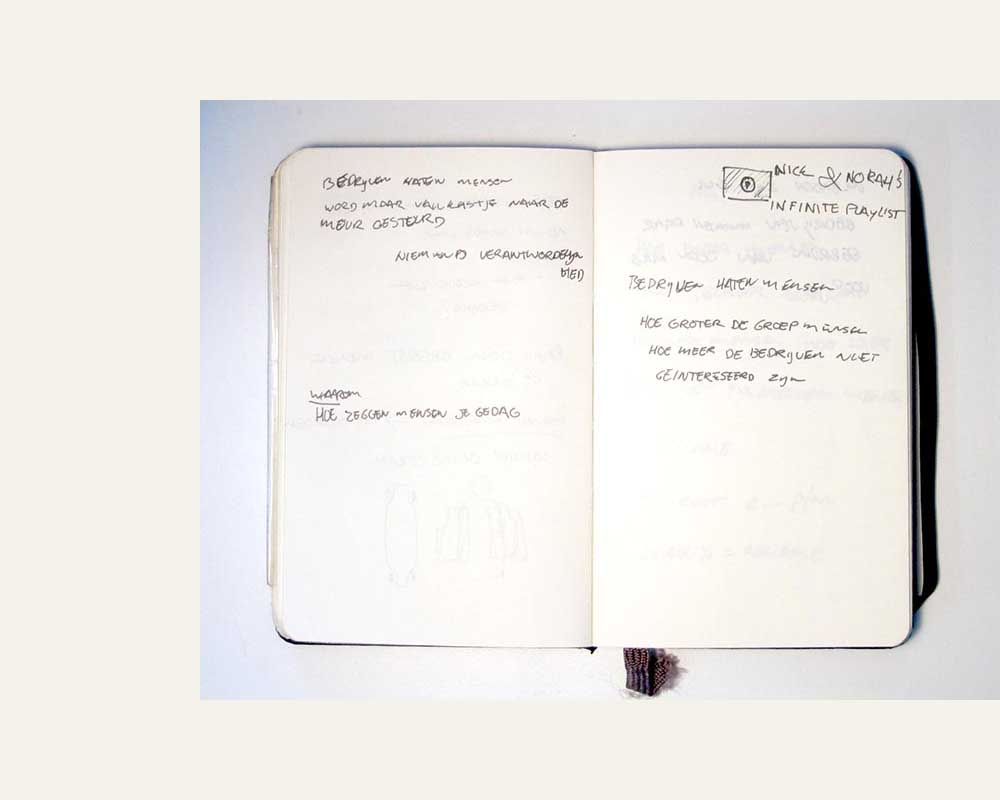 BEDRIJVEN HATEN MENSEN
WORD MAAR VAN KASTJE NAAR DE
MEUR GESTEURD
NIEMAND VERANTWOORDELIJK
HEID
WAAROM
HOE ZEGGEN MENSEN JE GEDAG
NICK & NORAH'S
INFINITE PLAYLIST
BEDRIJVEN HATEN MENSEN
HOE GROTER DE GROEP MENSEN
HOE MEER DE BEDRIJVEN NIET
GEINTERESEERD ZIJN